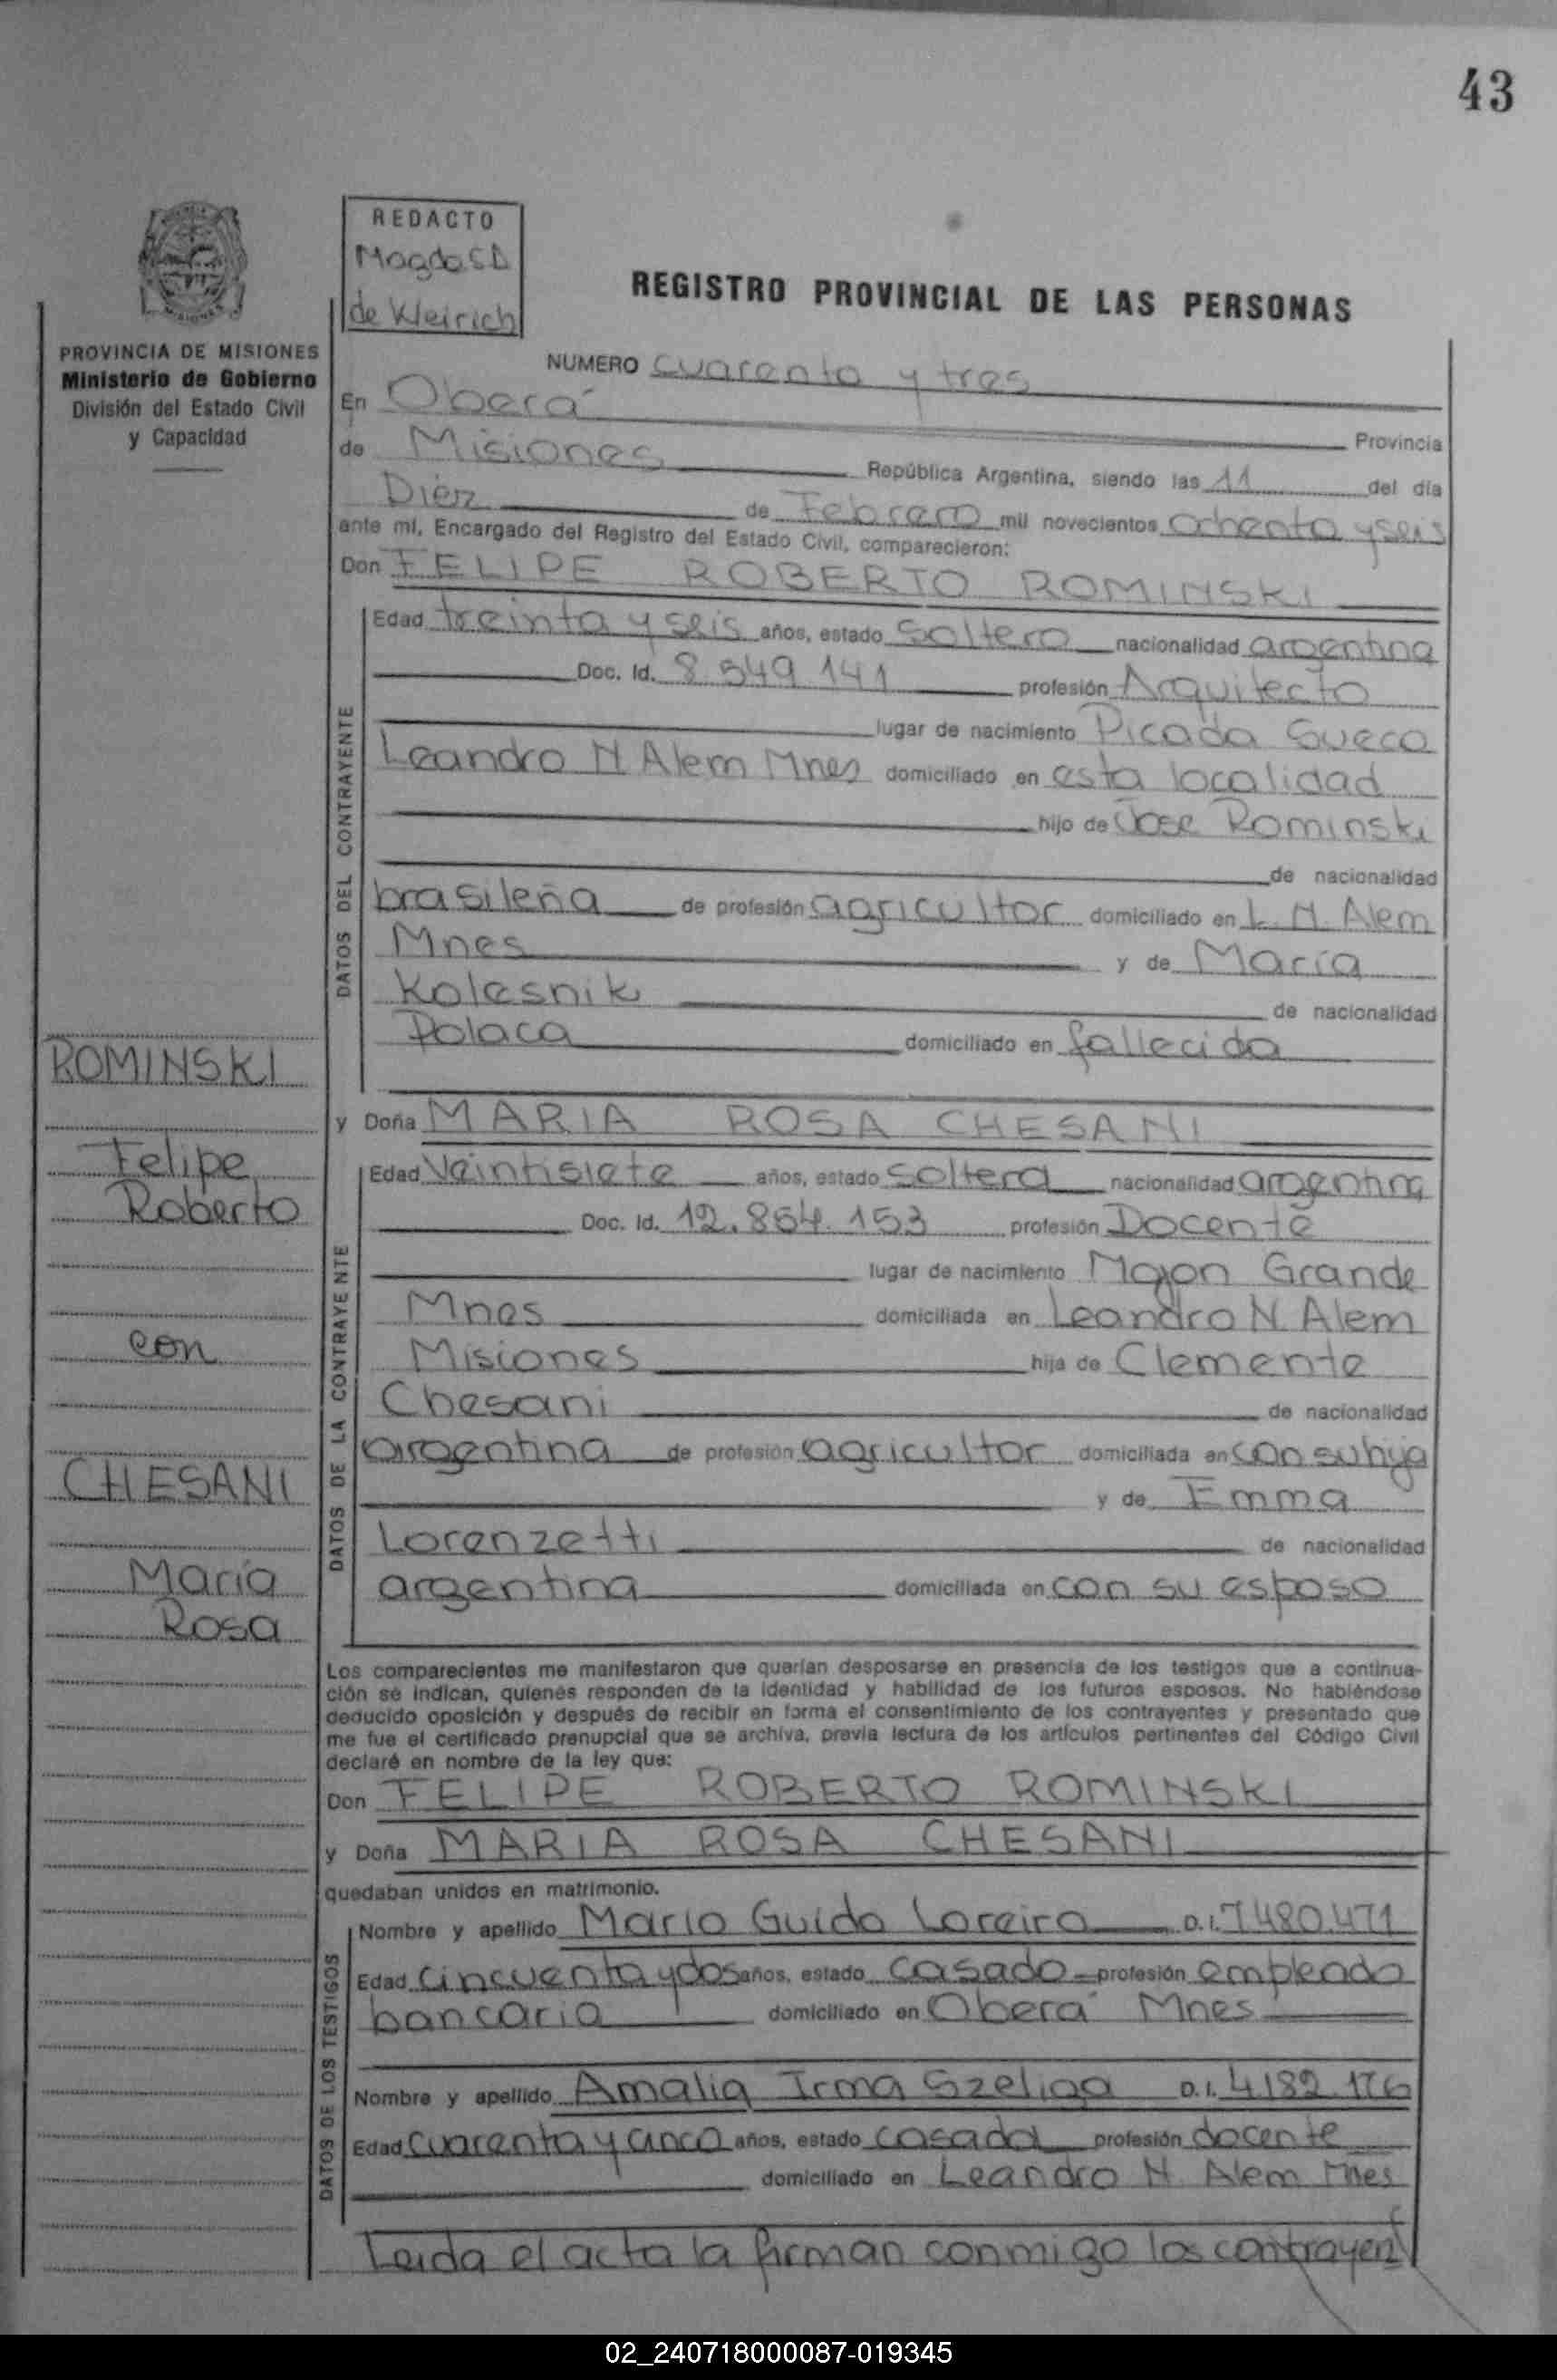 43
REDACTO
Magda S D
de Kleirich
REGISTRO PROVINCIAL DE LAS PERSONAS
PROVINCIA DE MISIONES
Ministerio de Gobierno
División del Estado Civil
y Capacidad
NUMERO cuarenta y tres
En Oberá
Provincia
de Misiones República Argentina, siendo las 11 del día
Diez de Febrero mil novecientos ochenta y seis
ante mí, Encargado del Registro del Estado Civil, comparecieron:
Don FELIPE ROBERTO ROMINSKI
DATOS DEL CONTRAYENTE
Edad treinta y seis años, estado soltero nacionalidad argentina
Doc. Id. 8.549.141 profesión Arquitecto
lugar de nacimiento Picada Sueca
Leandro N Alem Mnes domiciliado en esta localidad
hijo de Jose Rominski
de nacionalidad
brasileña de profesión agricultor domiciliado en L. N. Alem
Mnes y de María
Kolesnik de nacionalidad
Polaca domiciliado en fallecida
y Doña MARIA ROSA CHESANI
DATOS DE LA CONTRAYENTE
Edad Veintisiete años, estado soltera nacionalidad argentina
Doc. Id. 12.864.153 profesión Docente
lugar de nacimiento Mojon Grande
Mnes domiciliada en Leandro N. Alem
Misiones hija de Clemente
Chesani de nacionalidad
argentina de profesión agricultor domiciliada en con su hija
y de Emma
Lorenzetti de nacionalidad
argentina domiciliada en con su esposo
ROMINSKI
Felipe
Roberto
con
CHESANI
María
Rosa
Los comparecientes me manifestaron que querían desposarse en presencia de los testigos que a continua-
ción se indican, quienes responden de la identidad y habilidad de los futuros esposos. No habiéndose
deducido oposición y después de recibir en forma el consentimiento de los contrayentes y presentado que
me fue el certificado prenupcial que se archiva, previa lectura de los artículos pertinentes del Código Civil
declaré en nombre de la ley que:
Don FELIPE ROBERTO ROMINSKI
y Doña MARIA ROSA CHESANI
quedaban unidos en matrimonio.
DATOS DE LOS TESTIGOS
Nombre y apellido Mario Guido Loreiro D.I. 7480.471
Edad cincuenta y dos años, estado casado profesión empleado
bancario domiciliado en Oberá Mnes
Nombre y apellido Amalia Irma Szeliga D.I. 4.182.176
Edad cuarenta y cinco años, estado casada profesión docente
domiciliado en Leandro N Alem Mnes
Leida el acta la firman conmigo los contrayen
02_240718000087-019345